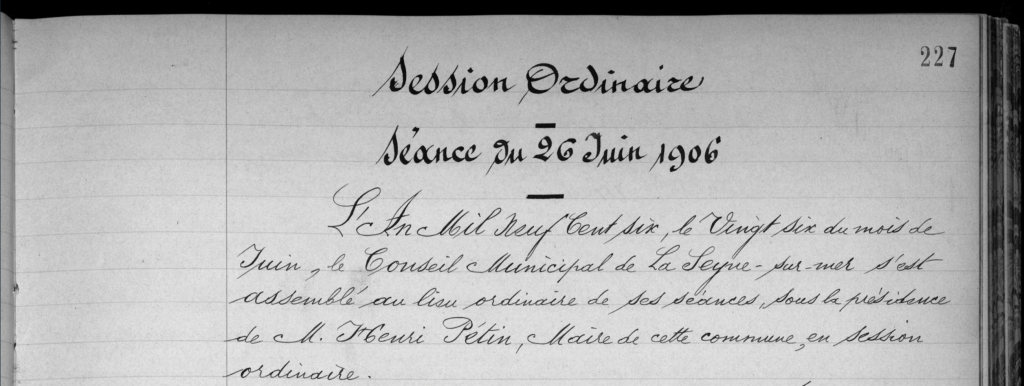 227
Session Ordinaire
Séance du 26 Juin 1906
L'An Mil Neuf Cent six, le Vingt six du mois de
Juin, le Conseil Municipal de La Seyne-sur-mer s'est
assemblé au lieu ordinaire de ses séances, sous la présidence
de M. Henri Pétin, Maire de cette commune, en session
ordinaire.